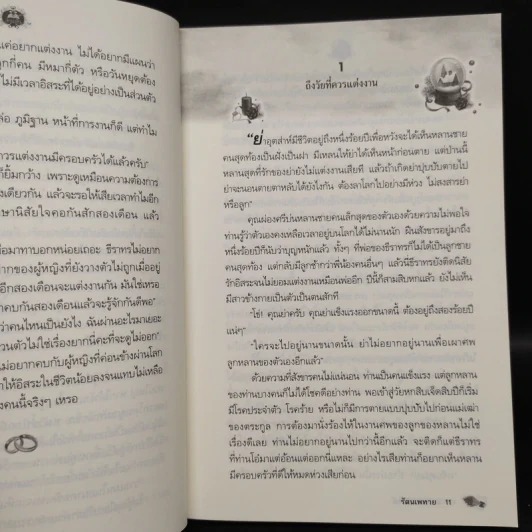 แค่อยากแต่งงาน ไม่ได้อยากมีแผนว่า
ลูกกี่คน มีหมากี่ตัว หรือวันหยุดต้อง
ไม่มีเวลาอิสระที่ได้อยู่อย่างเป็นส่วนตัว
ล่อ ภูมิฐาน หน้าที่การงานก็ดี แต่ทำไม
ควรแต่งงานมีครอบครัวได้แล้วครับ"
ก็ยิ้มกว้าง เพราะดูเหมือนความต้องการ
เดียวกัน แล้วจะรอให้เสียเวลาทำไมอีก
ษานิสัยใจคอกันสักสองเดือน แล้ว
อมาทาบอกหน่อยเถอะ ธีราทรไม่อยาก
ากของผู้หญิงที่ยังวางตัวไม่ถูกเมื่ออยู่
อีกสองเดือนจะแต่งงานกัน มันใช่เหรอ
คบกันสองเดือนแล้วจะรู้จักกันดีพอ"
ว่าคนไหนเป็นยังไง ฉันผ่านอะไรมาเยอะ
วนตัวไม่ใช่เรื่องยากนี่คะที่จะดูไม่ออก"
อยากคบกับผู้หญิงที่ค่อนข้างผ่านโลก
าให้อิสระในชีวิตน้อยลงจนแทบไม่เหลือ
งคนนี้จริงๆ เหรอ
1
ถึงวัยที่ควรแต่งงาน
"ย่าอุตส่าห์มีชีวิตอยู่ถึงหนึ่งร้อยปีเพื่อหวังจะได้เห็นหลานชาย
คนสุดท้องเป็นฝั่งเป็นฝา มีเหลนให้ย่าได้เห็นหน้าก่อนตาย แต่ป่านนี้
หลานสุดที่รักของย่ายังไม่แต่งงานเสียที แล้วถ้าเกิดย่าปุบปับตายไป
ย่าจะนอนตายตาหลับได้ยังไงกัน ต้องลาโลกไปอย่างมีห่วง ไม่สงสารย่า
หรือลูก"
คุณผ่องศรีบ่นหลานชายคนเล็กสุดของตัวเองด้วยความไม่พอใจ
ท่านรู้ว่าตัวเองคงเหลือเวลาอยู่บนโลกได้ไม่นานนัก ฝืนสังขารอยู่มาถึง
หนึ่งร้อยปีก็นับว่าบุญหนักแล้ว ทั้งๆ ที่พ่อของธีราทรก็ไม่ได้เป็นลูกชาย
คนสุดท้อง แต่กลับมีลูกช้ากว่าพี่น้องคนอื่นๆ แล้วนี่ธีราทรยังติดนิสัย
รักอิสระจนไม่ยอมแต่งงานเหมือนพ่ออีก ปีนี้ก็สามสิบหกแล้ว ยังไม่เห็น
มีสาวข้างกายเป็นตัวเป็นตนสักที
"โธ่! คุณย่าครับ คุณย่าแข็งแรงออกขนาดนี้ ต้องอยู่ถึงสองร้อยปี
แน่ๆ"
"ใครจะไปอยู่นานขนาดนั้น ย่าไม่อยากอยู่นานเพื่อเผาศพ
ลูกหลานของตัวเองอีกแล้ว"
ด้วยความที่สังขารคนไม่แน่นอน ท่านเป็นคนแข็งแรง แต่ลูกหลาน
ของท่านบางคนก็ไม่ได้โชคดีอย่างท่าน พอเข้าสู่วัยหกสิบเจ็ดสิบปีก็เริ่ม
มีโรคประจำตัว โรคร้าย หรือไม่ก็มีการตายแบบปุบปับไปก่อนแม่เฒ่า
ของตระกูล การต้องมานั่งร้องไห้ในงานศพของลูกของหลานไม่ใช่
เรื่องดีเลย ท่านไม่อยากอยู่นานไปกว่านี้อีกแล้ว จะติดก็แต่ธีราทร
ที่ท่านโอ๋มาแต่อ้อนแต่ออกนี่แหละ อย่างไรเสียท่านก็อยากเห็นหลาน
มีครอบครัวที่ดีให้หมดห่วงเสียก่อน
รัตนแพทาย 11